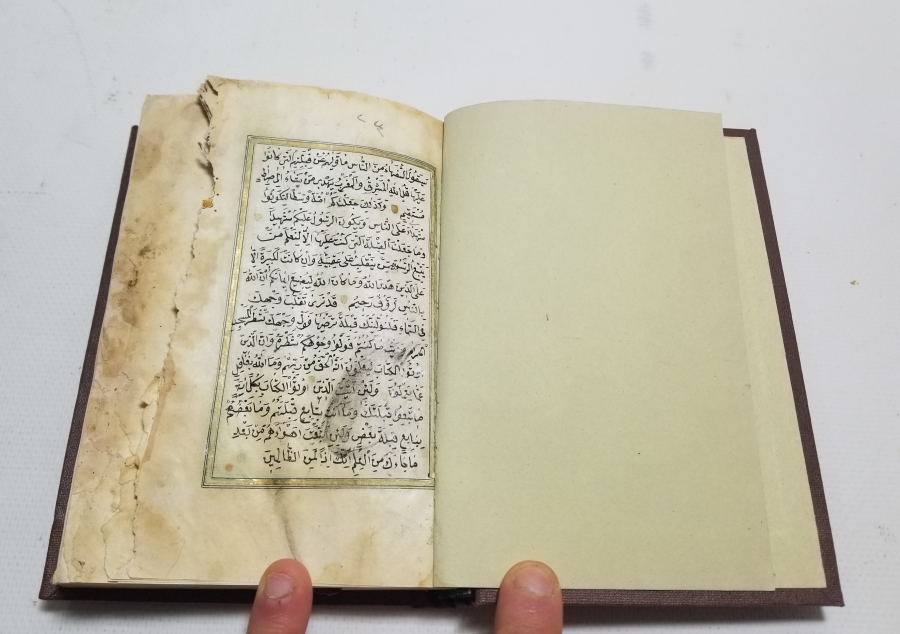 سيقول السفهاء من الناس ما وليهم عن قبلتهم التي كانوا
عليها قل لله المشرق والمغرب يهدي من يشاء الى صراط
مستقيم وكذلك جعلناكم امة وسطا لتكونوا
شهداء على الناس ويكون الرسول عليكم شهيدا
وما جعلنا القبلة التي كنت عليها الا لنعلم من
يتبع الرسول ممن ينقلب على عقبيه وان كانت لكبيرة الا
على الذين هدى الله وما كان الله ليضيع ايمانكم ان الله
بالناس لرؤف رحيم قد نرى تقلب وجهك
في السماء فلنولينك قبلة ترضها فول وجهك شطر المسجد
الحرام وحيث ما كنتم فولوا وجوهكم شطره وان الذين
اوتوا الكتاب ليعلمون انه الحق من ربهم وما الله بغافل
عما يعملون ولئن اتيت الذين اوتوا الكتاب بكل اية
ما تبعوا قبلتك وما انت بتابع قبلتهم وما بعضهم
بتابع قبلة بعض ولئن اتبعت اهواءهم من بعد
ما جاءك من العلم انك اذا لمن الظالمين